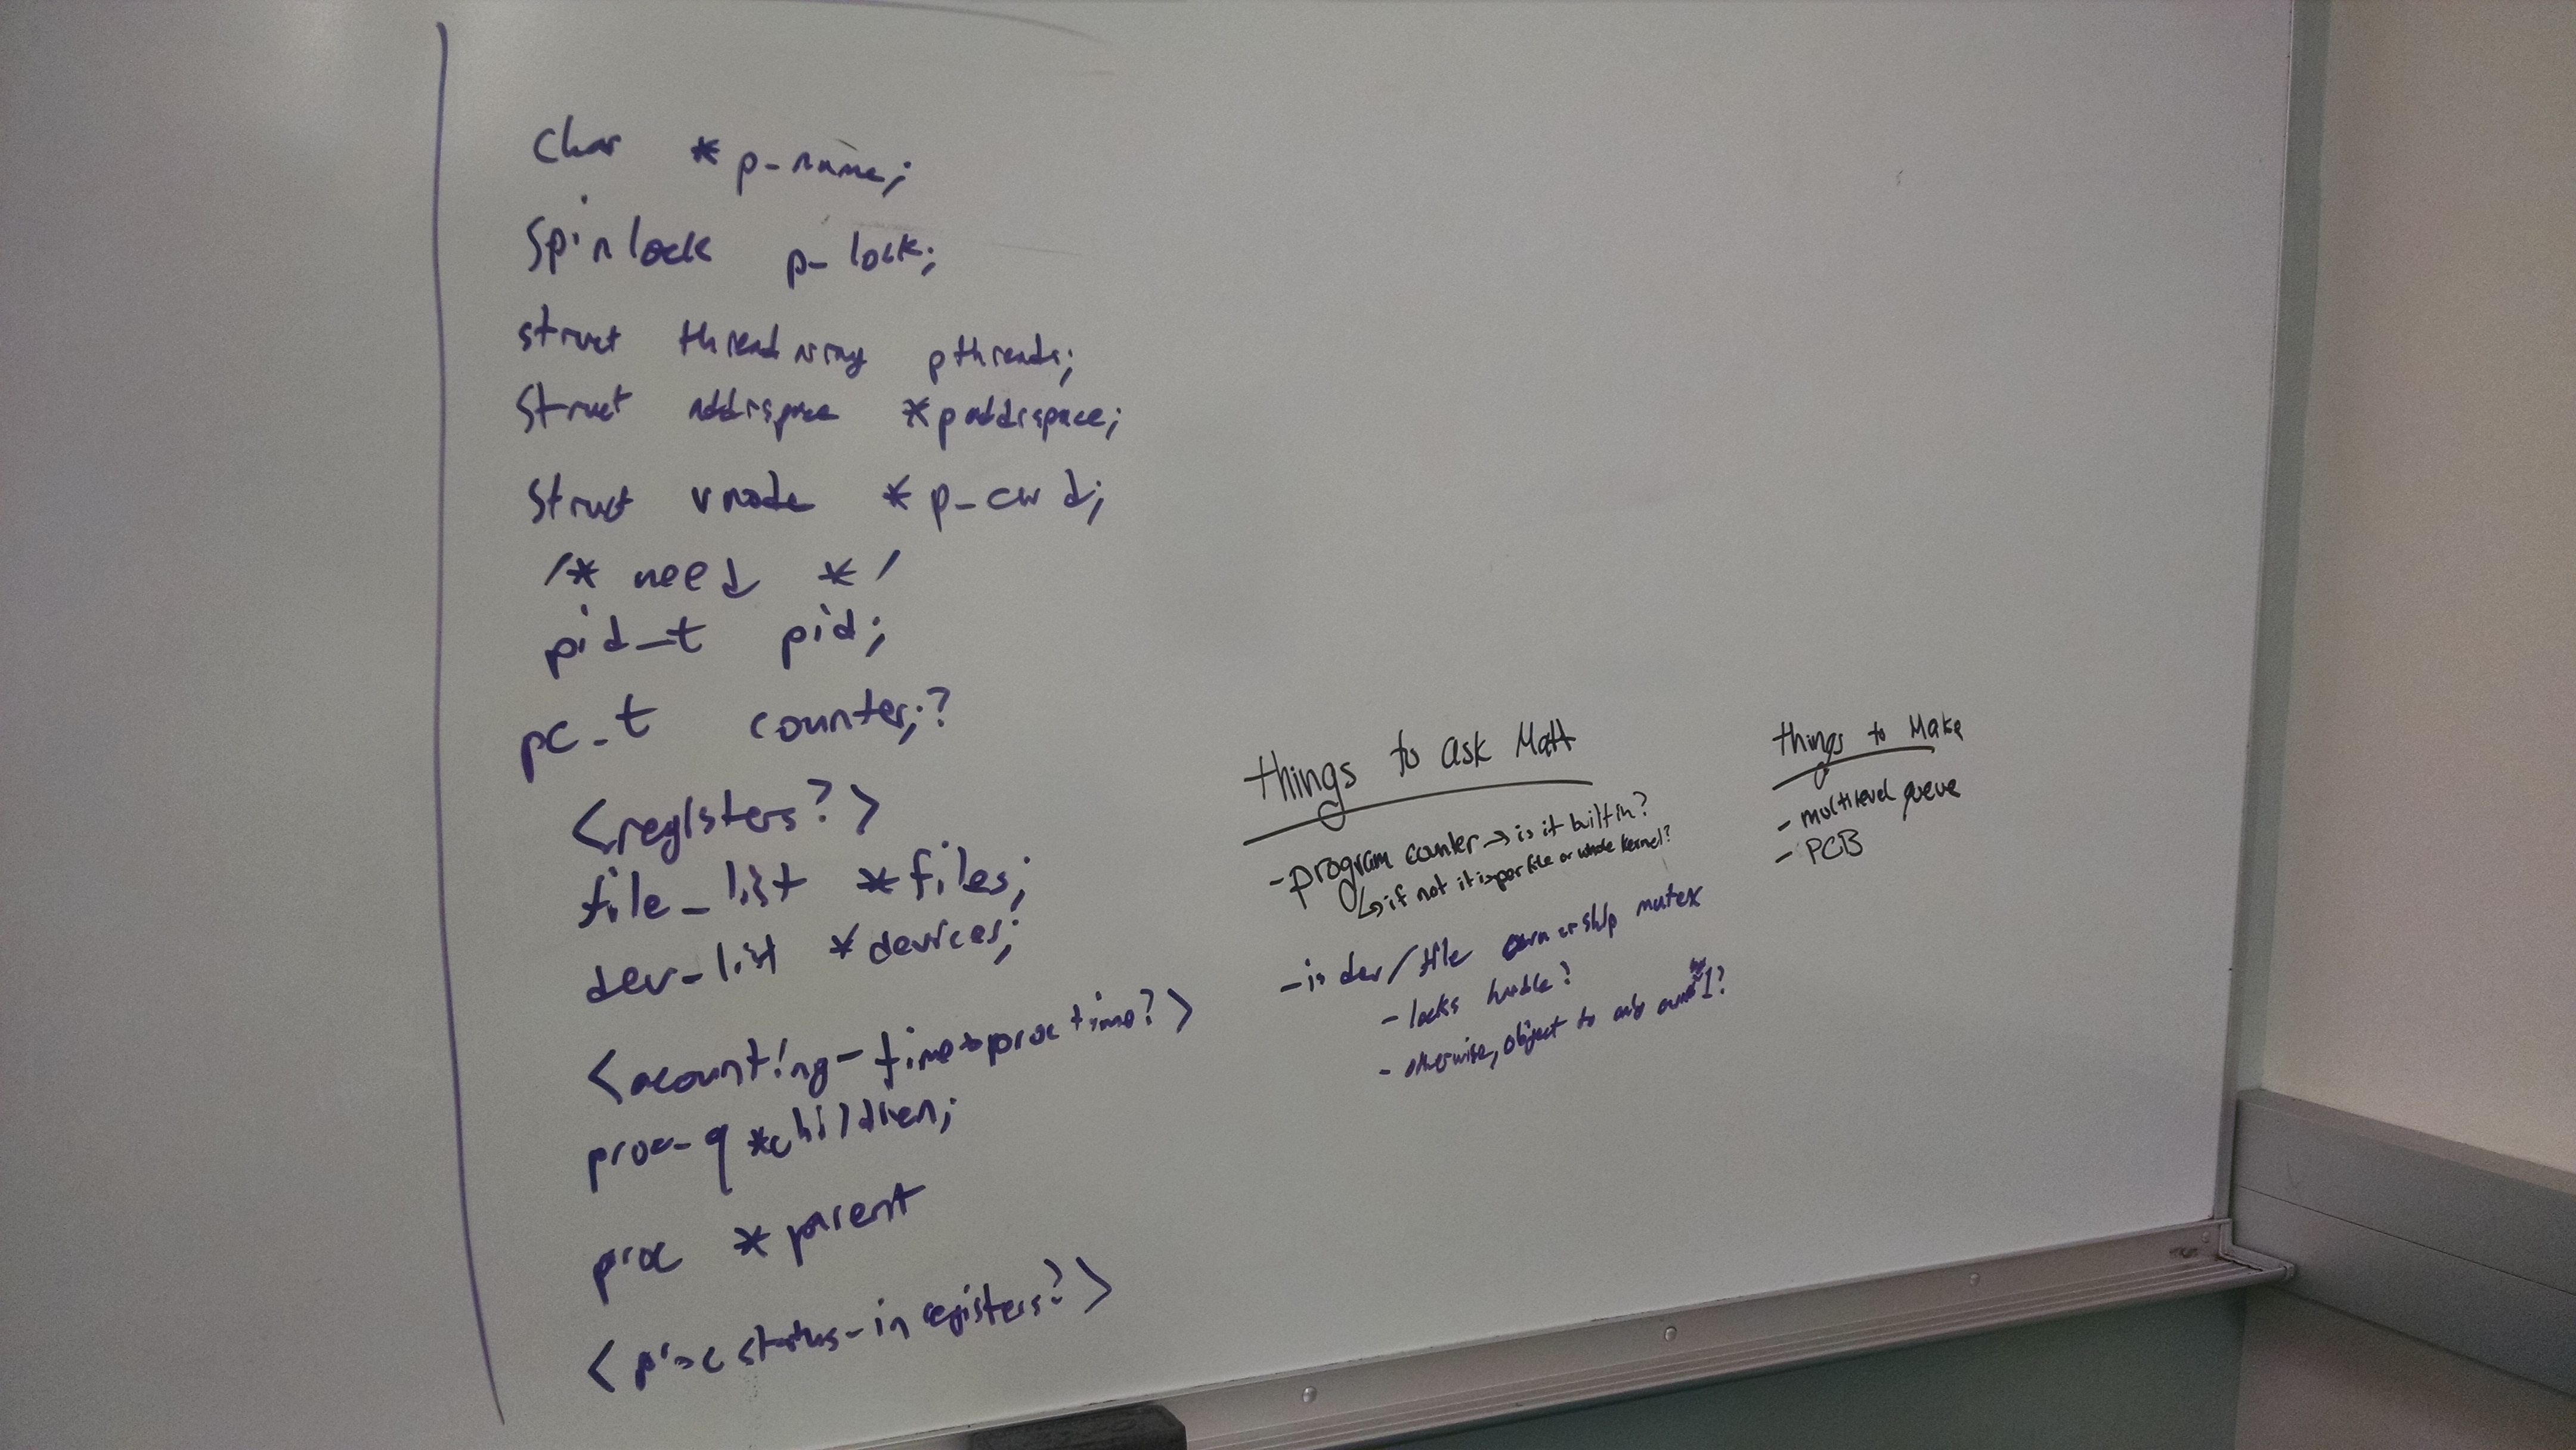 char *p_name;
Spinlock p_lock;
struct threadarray pthreads;
struct addrspace *paddrspace;
struct vnode *p_cwd;
/* need */
pid_t pid;
pc_t counter;?
<registers?>
file_list *files;
dev_list *devices;
<acounting-time+proc time?>
proc_q *children;
proc *parent
<proc status-in registers?>
things to ask Matt
- program counter → is it built in?
↳ if not it is per file or whole kernel?
- is dev/file ownership mutex
- locks handle?
- otherwise, object to only own 1?
things to Make
- multilevel queue
- PCB